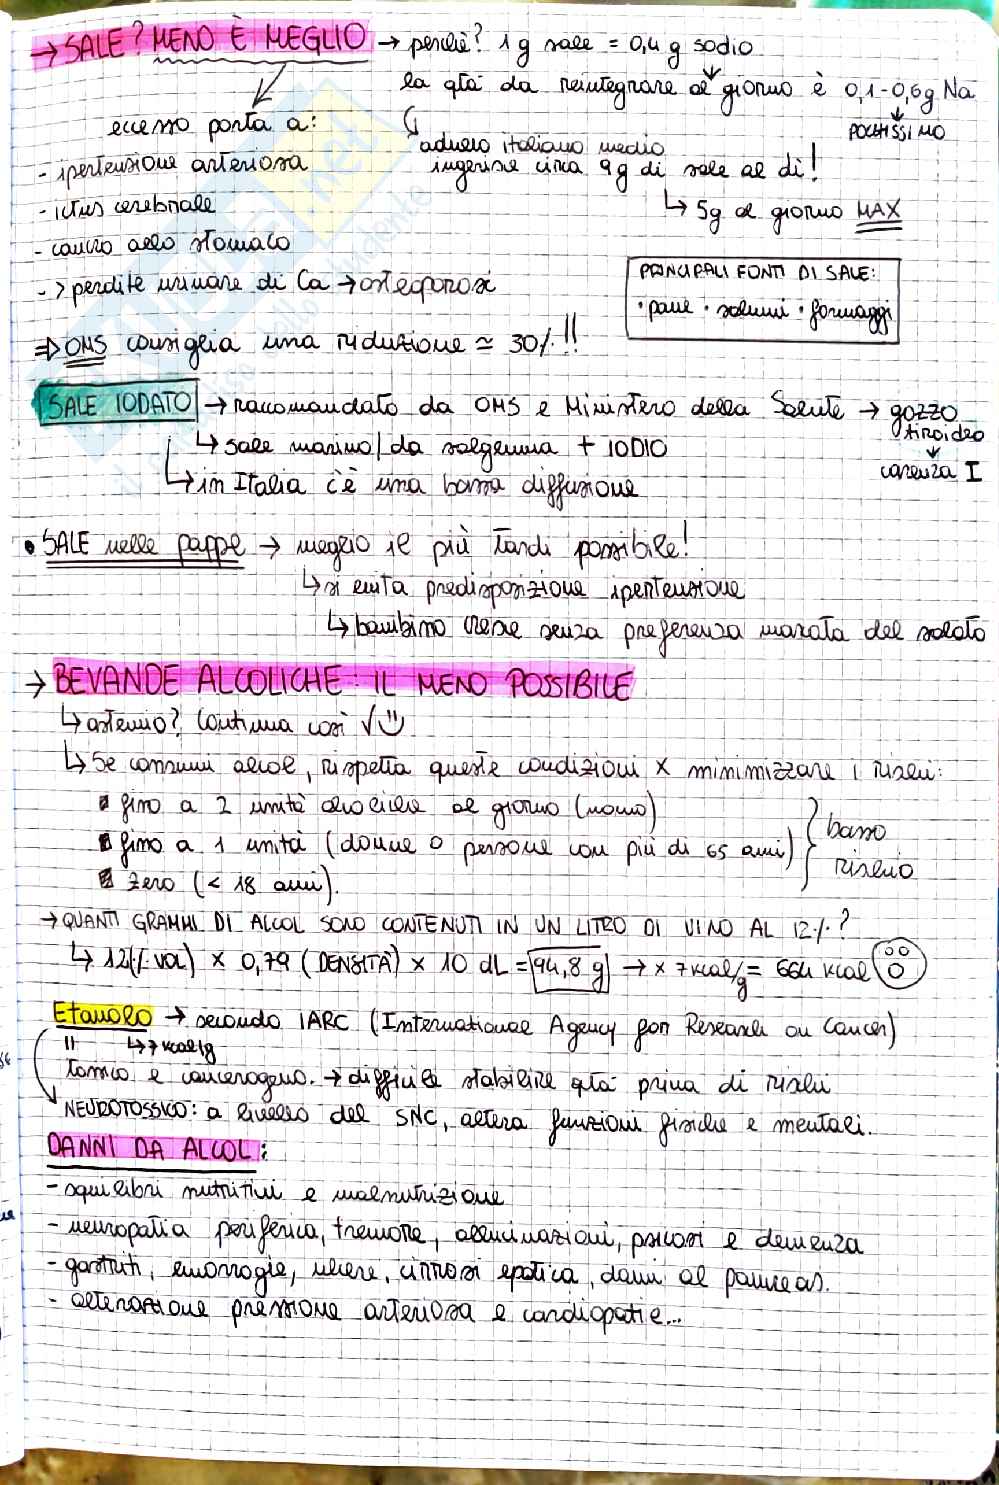 → SALE? MENO È MEGLIO → perchè? 1 g sale = 0,4 g sodio
la qtà da reintegrare al giorno è 0,1-0,6g Na
POCHISSIMO
eccesso porta a:
adulto italiano medio
ingerisce circa 9g di sale al dì!
- ipertensione arteriosa
↳ 5g al giorno MAX
- ictus cerebrale
- cancro allo stomaco
- > perdite urinarie di Ca → osteoporosi
PRINCIPALI FONTI DI SALE:
• pane • salumi • formaggi
⇒ OMS consiglia una riduzione ≃ 30% !!
SALE IODATO → raccomandato da OMS e Ministero della Salute → gozzo
tiroideo
↳ sale marino/da salgemma + IODIO
carenza I
↳ in Italia c'è una bassa diffusione
• SALE nelle pappe → meglio il più tardi possibile!
↳ si evita predisposizione ipertensione
↳ bambino cresce senza preferenza marcata del salato
→ BEVANDE ALCOLICHE: IL MENO POSSIBILE
↳ astemio? Continua così √
↳ Se consumi alcol, rispetta queste condizioni x minimizzare i rischi:
fino a 2 unità alcoliche al giorno (uomo)
fino a 1 unità (donne o persone con più di 65 anni)
basso
rischio
Zero (< 18 anni).
→ QUANTI GRAMMI DI ALCOL SONO CONTENUTI IN UN LITRO DI VINO AL 12%?
↳ 12(% VOL) x 0,79 (DENSITÀ) x 10 dL = 94,8 g → x 7 kcal/g = 664 kcal
Etanolo → secondo IARC (International Agency for Research on Cancer)
↳ 7 kcal/g
tossico e cancerogeno. → difficile stabilire qtà priva di rischi
NEUROTOSSICO: a livello del SNC, altera funzioni fisiche e mentali.
DANNI DA ALCOL:
- squilibri nutritivi e malnutrizione
- neuropatia periferica, tremore, allucinazioni, psicosi e demenza
- gastriti, emorragie, ulcere, cirrosi epatica, danni al pancreas.
- alterazione pressione arteriosa e cardiopatie...